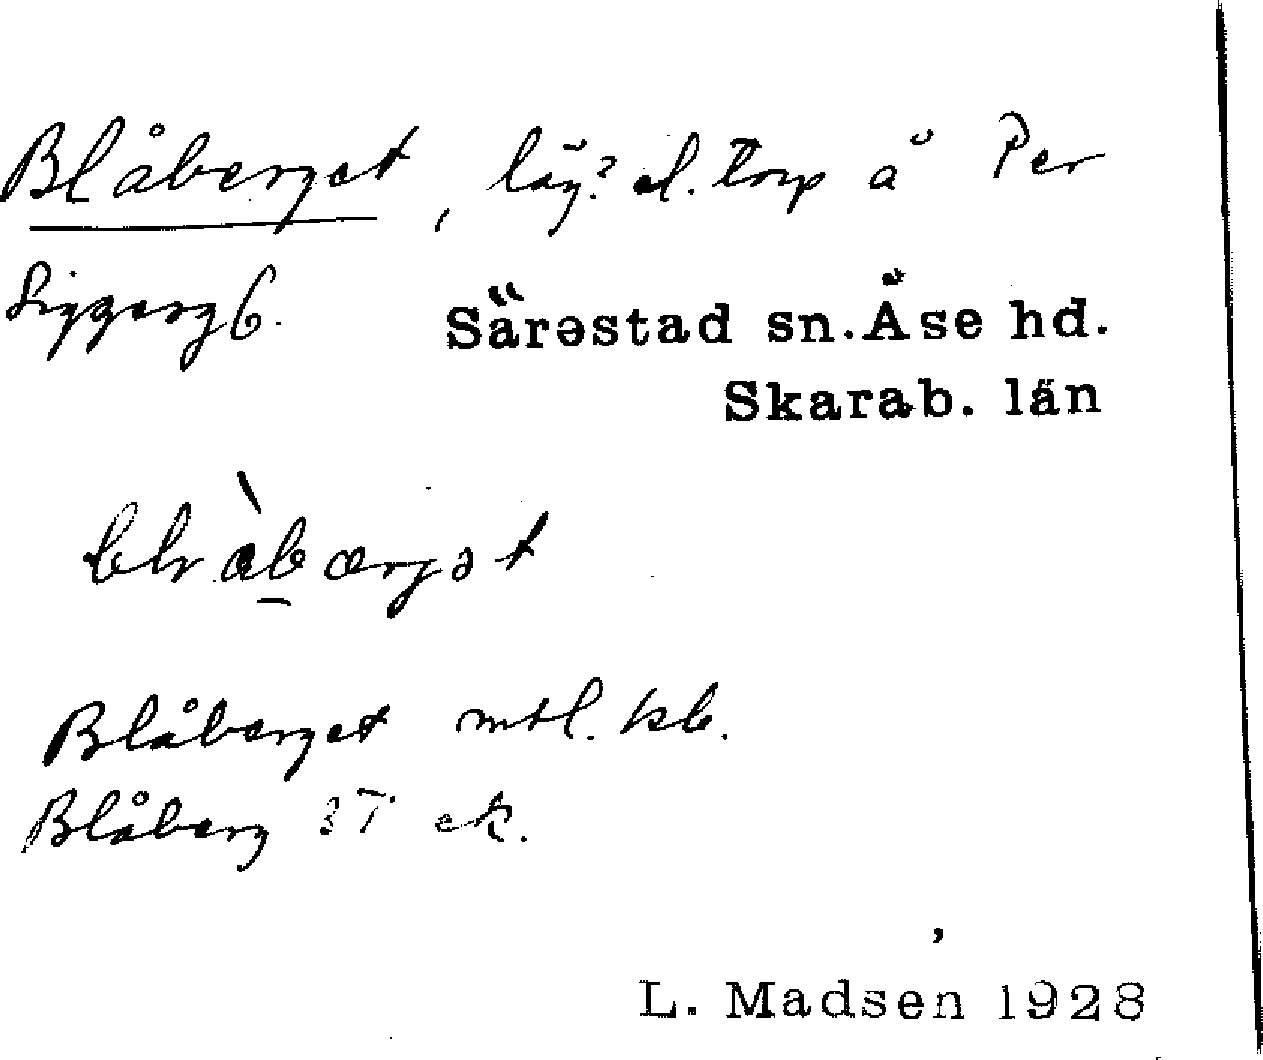 Blåberget, läg? el. torp å Per
Siggesg 6.
Särestad sn. Åse hd.
Skarab. län
blràbærjət
Blåberget mtl. kb.
Blåberg 3T ek.
L. Madsen 1928